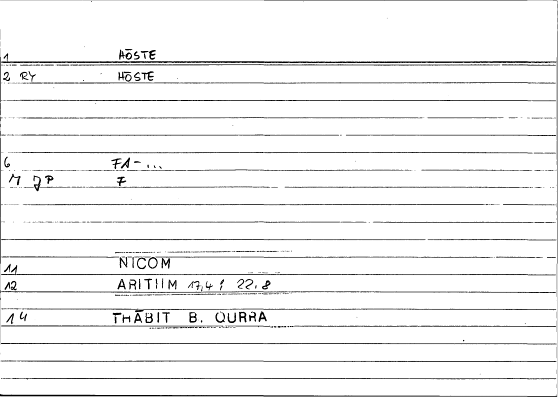 1 HŌSTE
2 RY HŌSTE
6 FA-...
7 JP F
11 NICOM
12 ARITHM 17,4; 22,8
14 THĀBIT B. QURRA